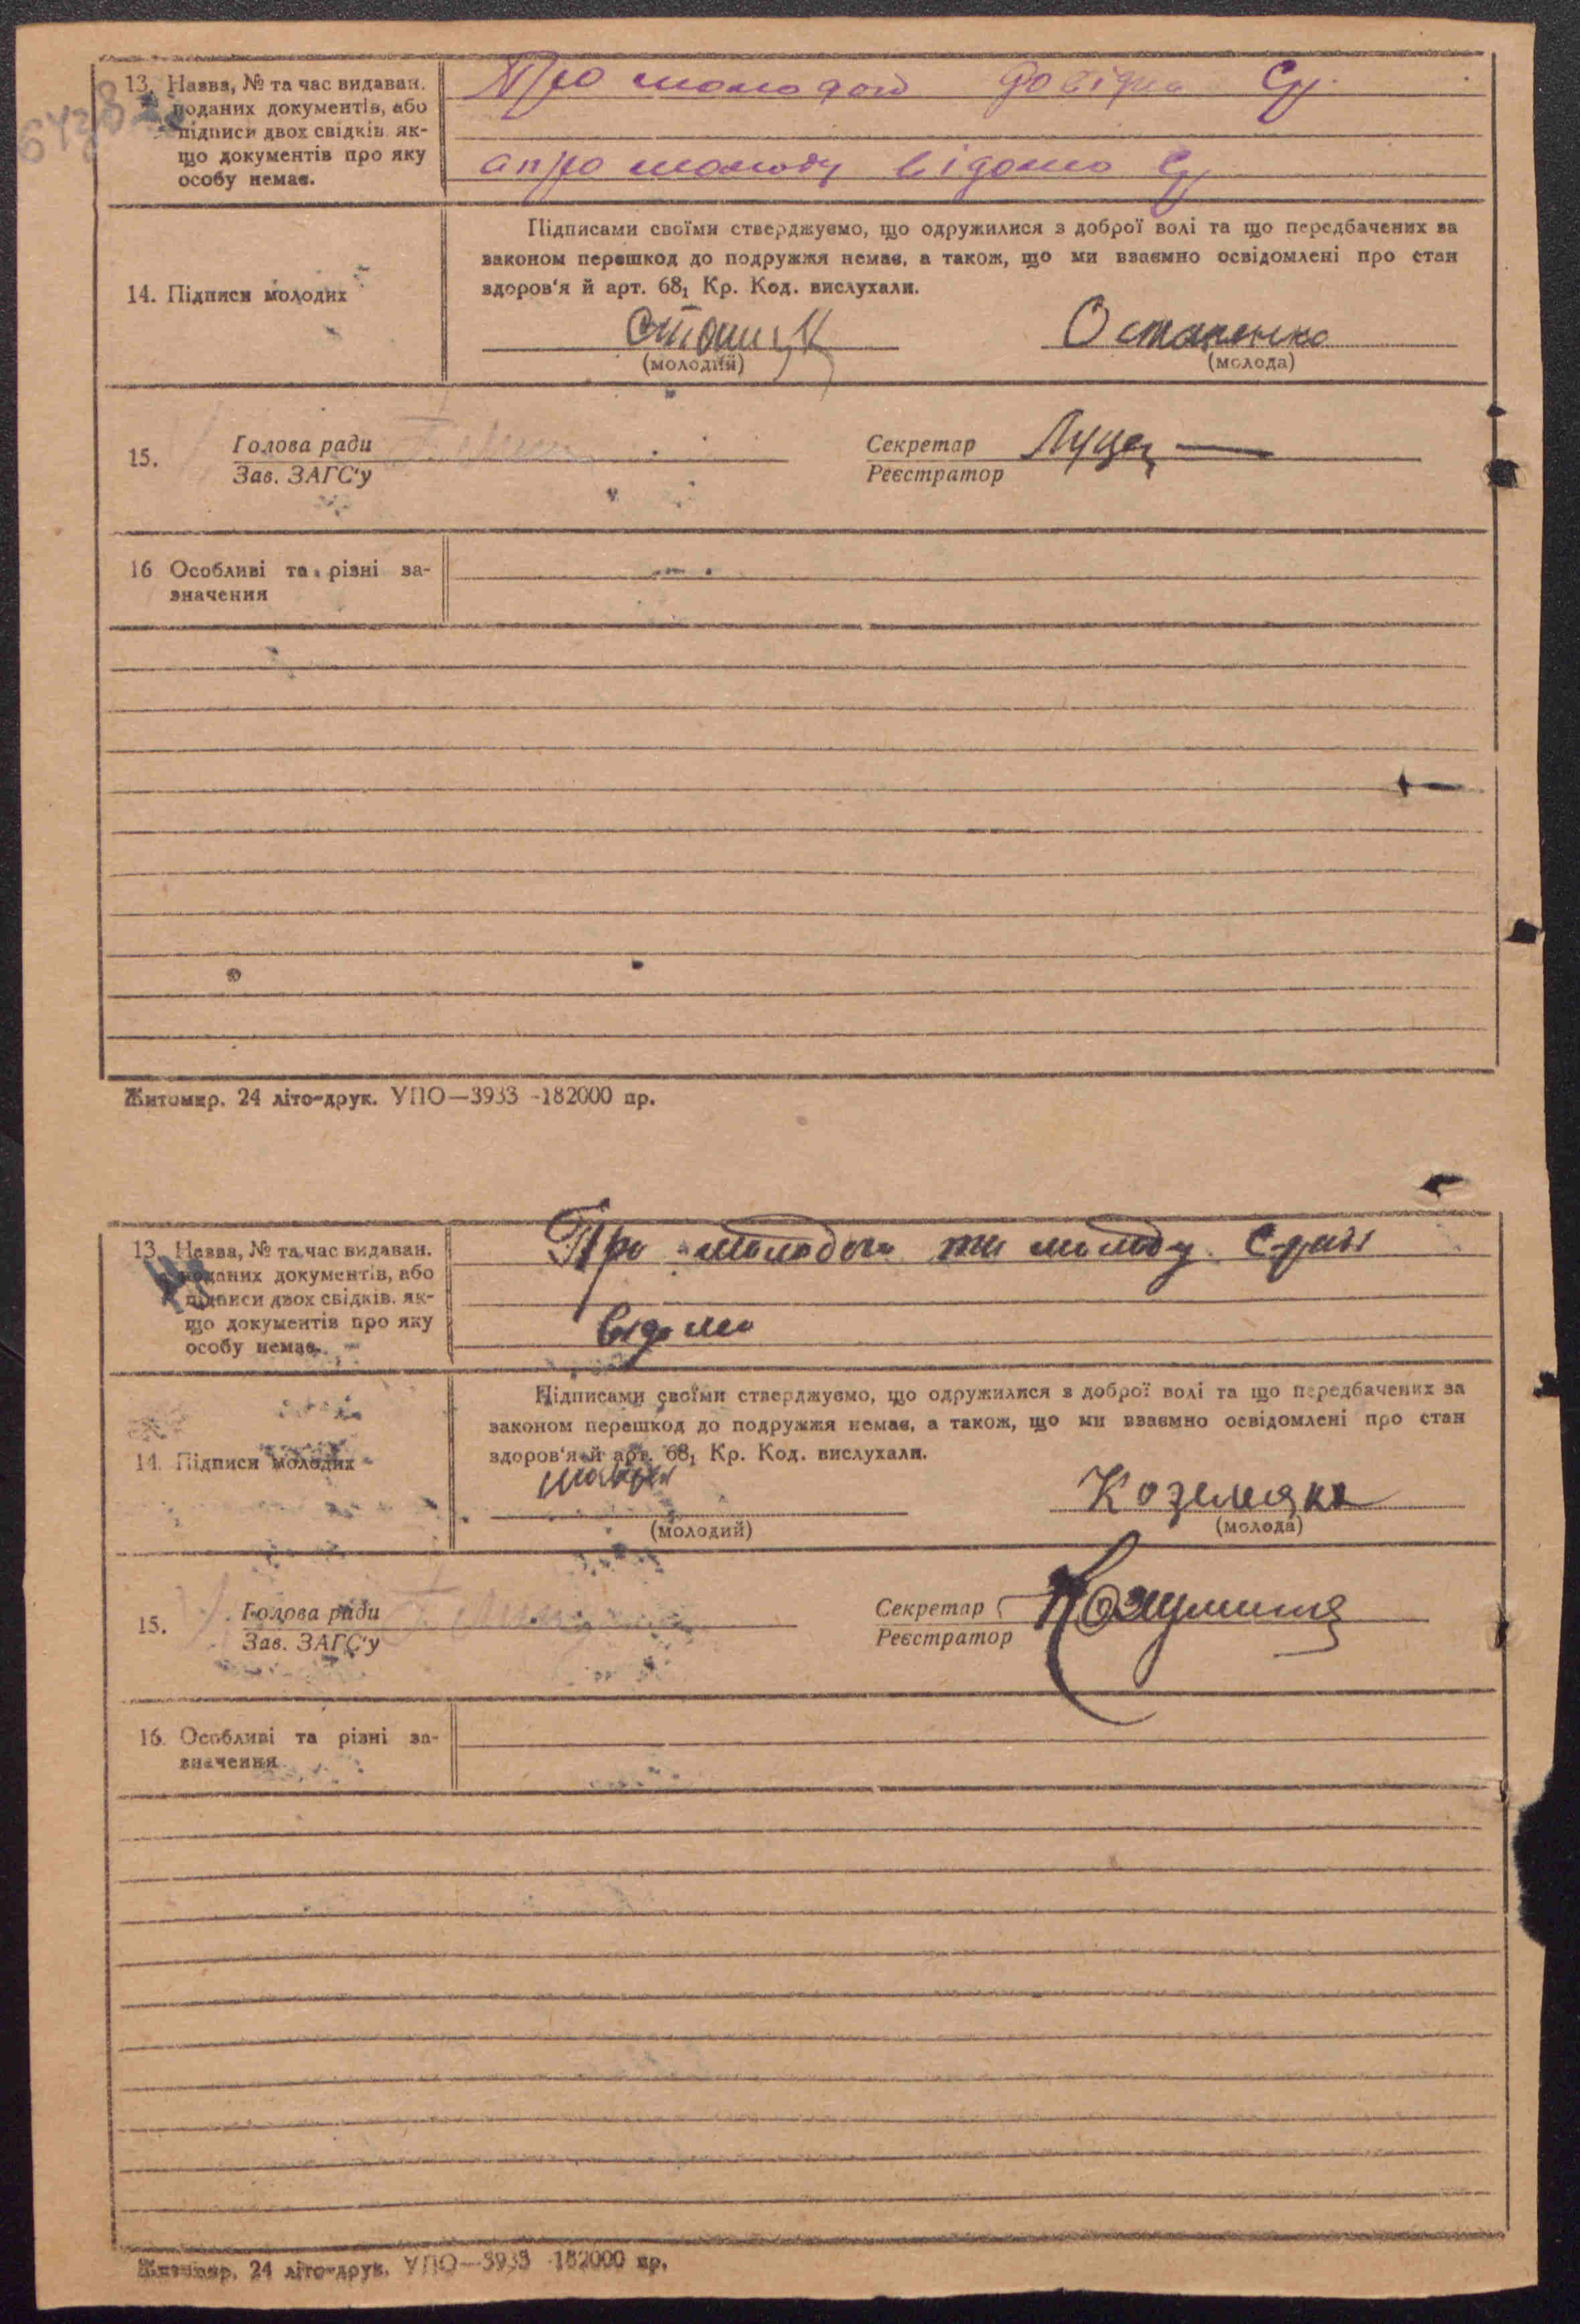 13. Назва, № та час видаван.
поданих документів, або
підписи двох свідків як-
що документів про яку
особу немає.
Про молодого довідка Ср.
а про молоду відомо Ср
14. Підписи молодих
Підписами своїми стверджуємо, що одружилися з доброї волі та що передбачених за
законом перешкод до подружжя немає, а також, що ми взаємно освідомлені про стан
здоров'я й арт. 68₁ Кр. Код. вислухали.
Остапенко
(молодий) (молода)
15. Голова ради
Зав. ЗАГС'у
Секретар
Реєстратор
16 Особливі та різні за-
значення
Житомир. 24 літо-друк. УПО—3933 -182000 пр.
13. Назва, № та час видаван.
поданих документів, або
підписи двох свідків. як-
що документів про яку
особу немає.
Про молодого та молоду Сраді
відомо
14. Підписи молодих
Підписами своїми стверджуємо, що одружилися з доброї волі та що передбачених за
законом перешкод до подружжя немає, а також, що ми взаємно освідомлені про стан
здоров'я й арт. 68₁ Кр. Код. вислухали.
Коземяка
(молодий) (молода)
15. Голова ради
Зав. ЗАГС'у
Секретар
Реєстратор
16. Особливі та різні за-
значення
Житомир. 24 літо-друк. УПО—3933 -182000 пр.